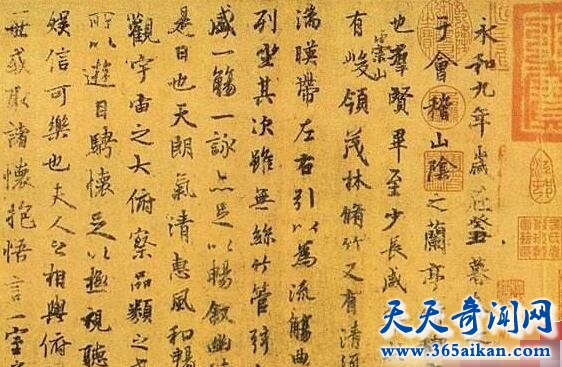 永和九年歲在癸丑暮
于會稽山陰之蘭亭
也羣賢畢至少長咸
有崇山峻領茂林脩竹又有清流
湍暎帶左右引以為流觴曲
列坐其次雖無絲竹管弦
盛一觴一詠亦足以暢敘幽
是日也天朗氣清惠風和暢
觀宇宙之大俯察品類之
所以遊目騁懷足以極視聽
娛信可樂也夫人之相與俯
世或取諸懷抱悟言一室
天天奇闻网
www.365aikan.com